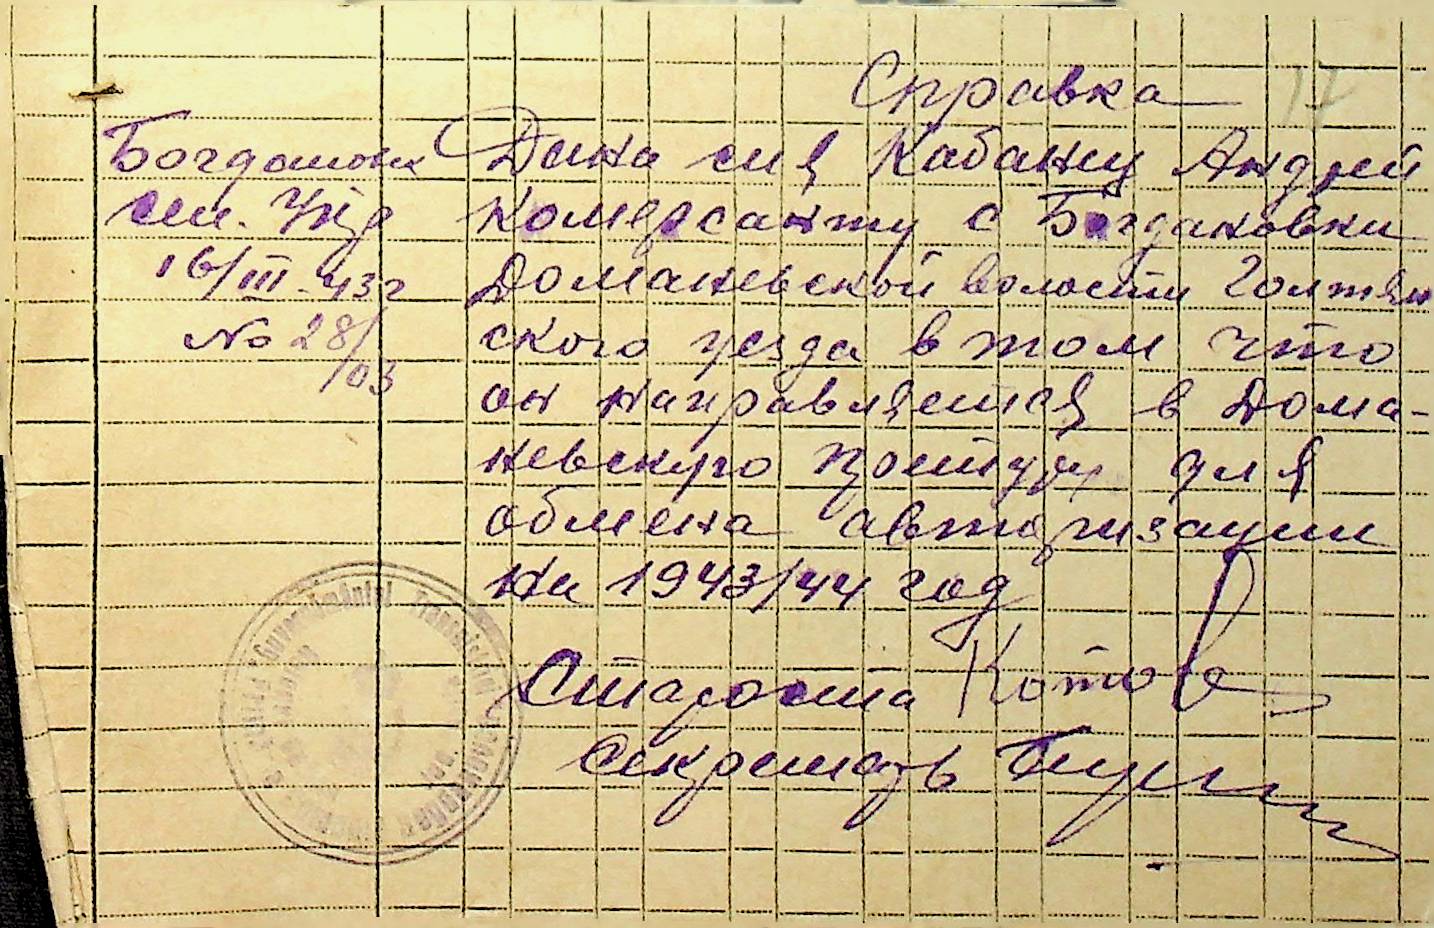 Справка
17
Богдановск
сел. Упр
16/III-43г
No 28/03
Дана сия Кабанцу Андрей
комерсанту с Богдановки
Доманевской волости Голтян
ского уезда в том что
он направляется в Дома-
невскую претуру для
обмена авторизации
на 1943/44 год
Староста Котов
Секретарь
Guvernământul Transnistriei